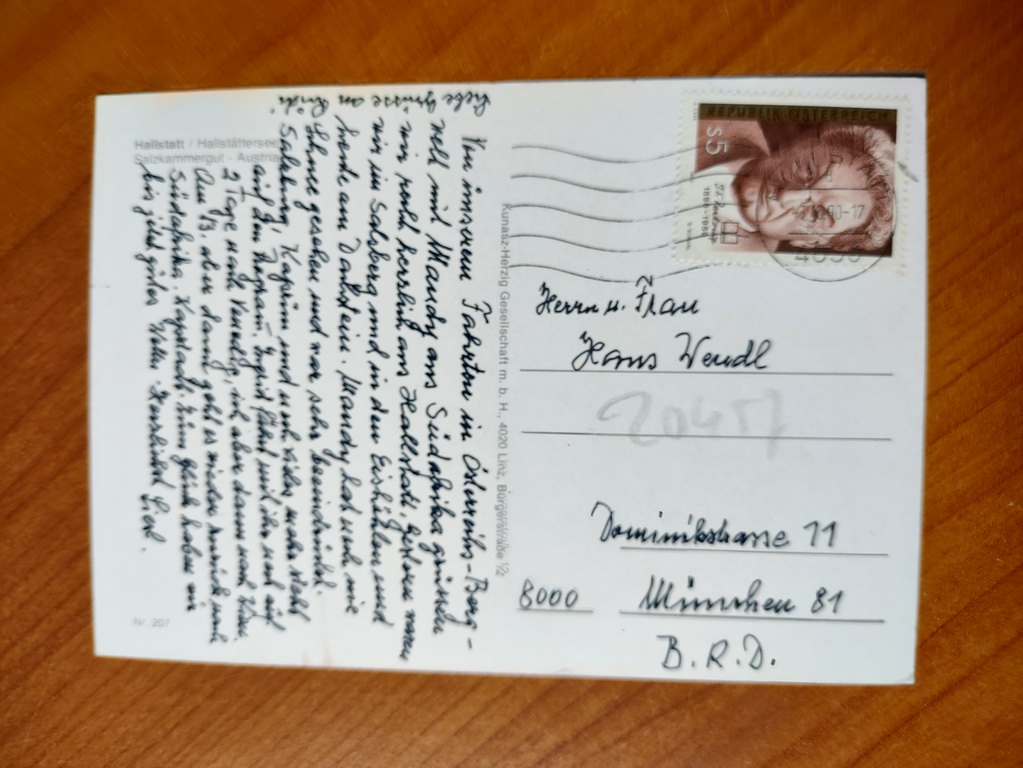 Hallstatt / Hallstättersee
Salzkammergut - Austria
Liebe Grüsse an
Von unserer Fahrten in Österreichs Berg-
welt mit Mandy aus Südafrika grüßen
wir recht herzlich aus Hallstadt. Gestern waren
wir im Salzberg und in den Eishöhlen und
heute am Dachstein. Mandy hat noch nie
Schnee gesehen und war sehr beeindruckt.
Salzburg, Kaprun und noch vieles mehr steht
auf dem Program. Ingrid fährt mit ihr noch auf
2 Tage nach Venedig, ich aber dann nach
Am 13. aber dann geht es wieder zurück nach
Südafrika, Kapstadt. Zum Glück haben wir
bis jetzt gutes Herzlichst
Nr. 207
Kunasz-Herzig Gesellschaft m. b. H., 4020 Linz, Bürgerstraße
REPUBLIK ÖSTERREICH
S5
Herrn u. Frau
Hans Wendl
20457
Dominikstrasse 11
8000 München 81
B.R.D.